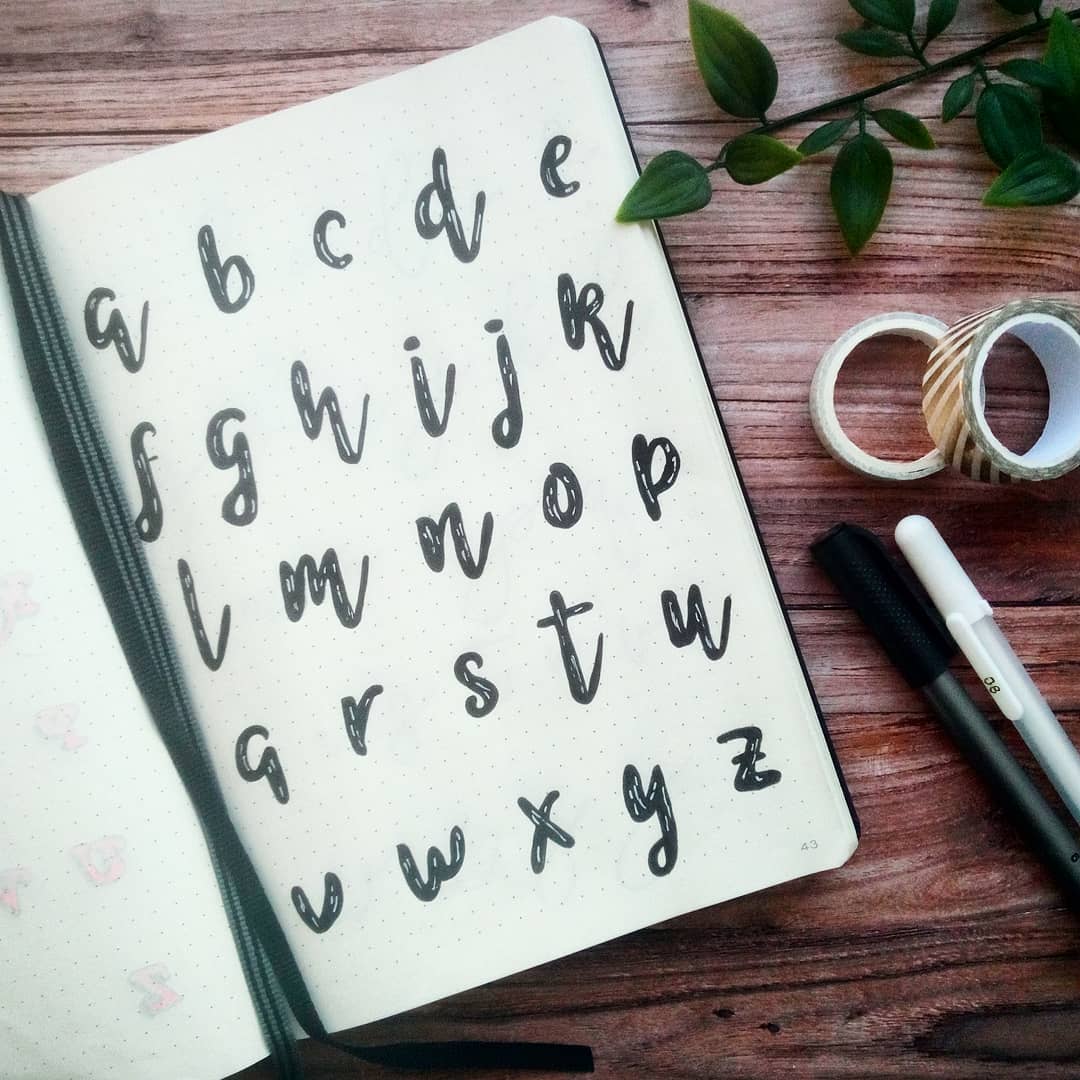 a b c d e
f g h i j k
l m n o p
q r s t u
v w x y z
43
08